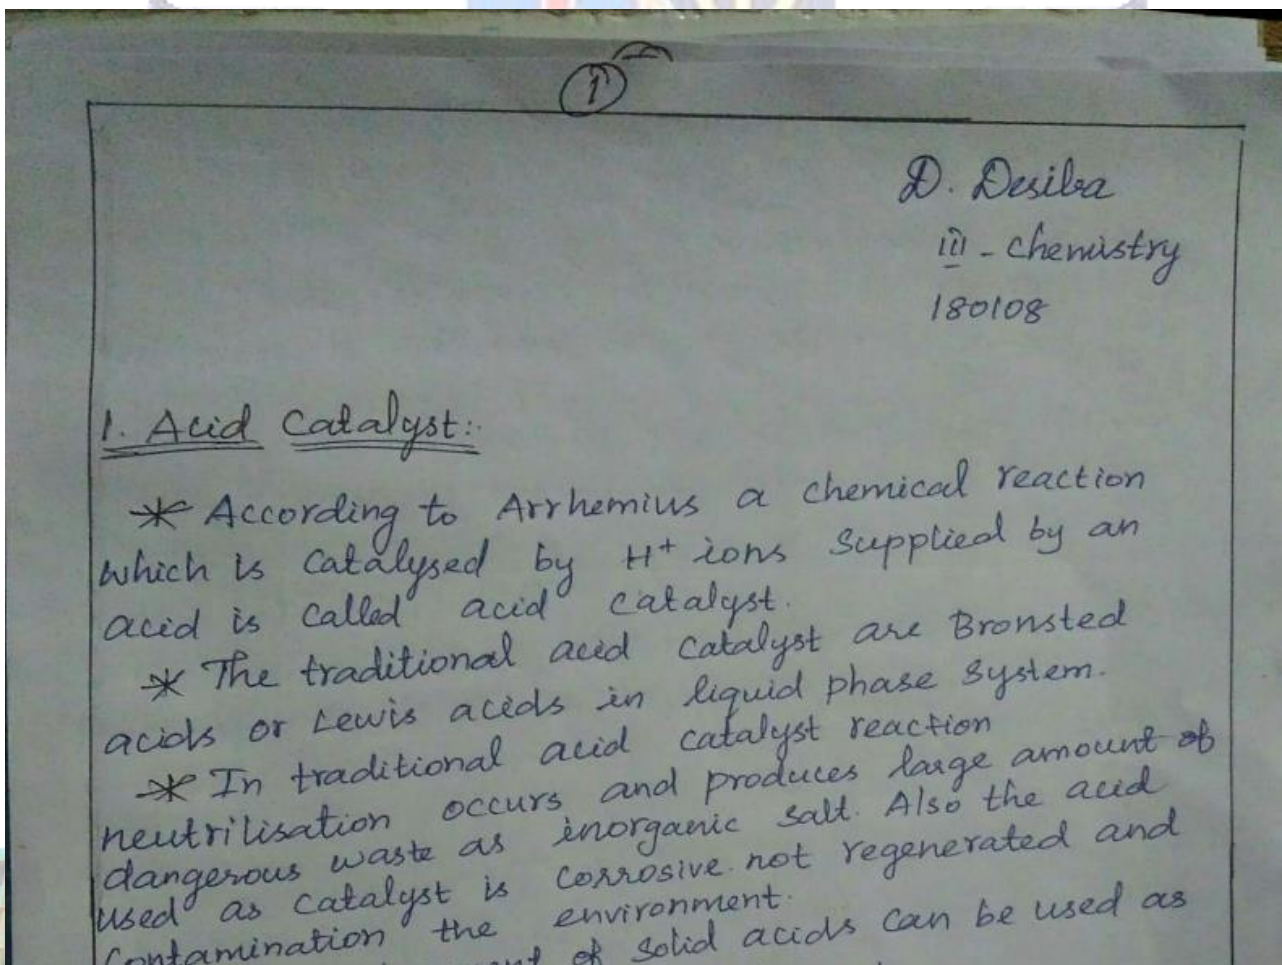 1
D. Desiba
III - Chemistry
180108
1. Acid Catalyst:-
* According to Arrhemius a chemical reaction
which is catalysed by H+ ions supplied by an
acid is called acid catalyst.
* The traditional acid catalyst are Bronsted
acids or Lewis acids in liquid phase system.
* In traditional acid catalyst reaction
neutrilisation occurs and produces large amount of
dangerous waste as inorganic salt. Also the acid
used as catalyst is corrosive not regenerated and
contamination the environment.
of solid acids can be used as